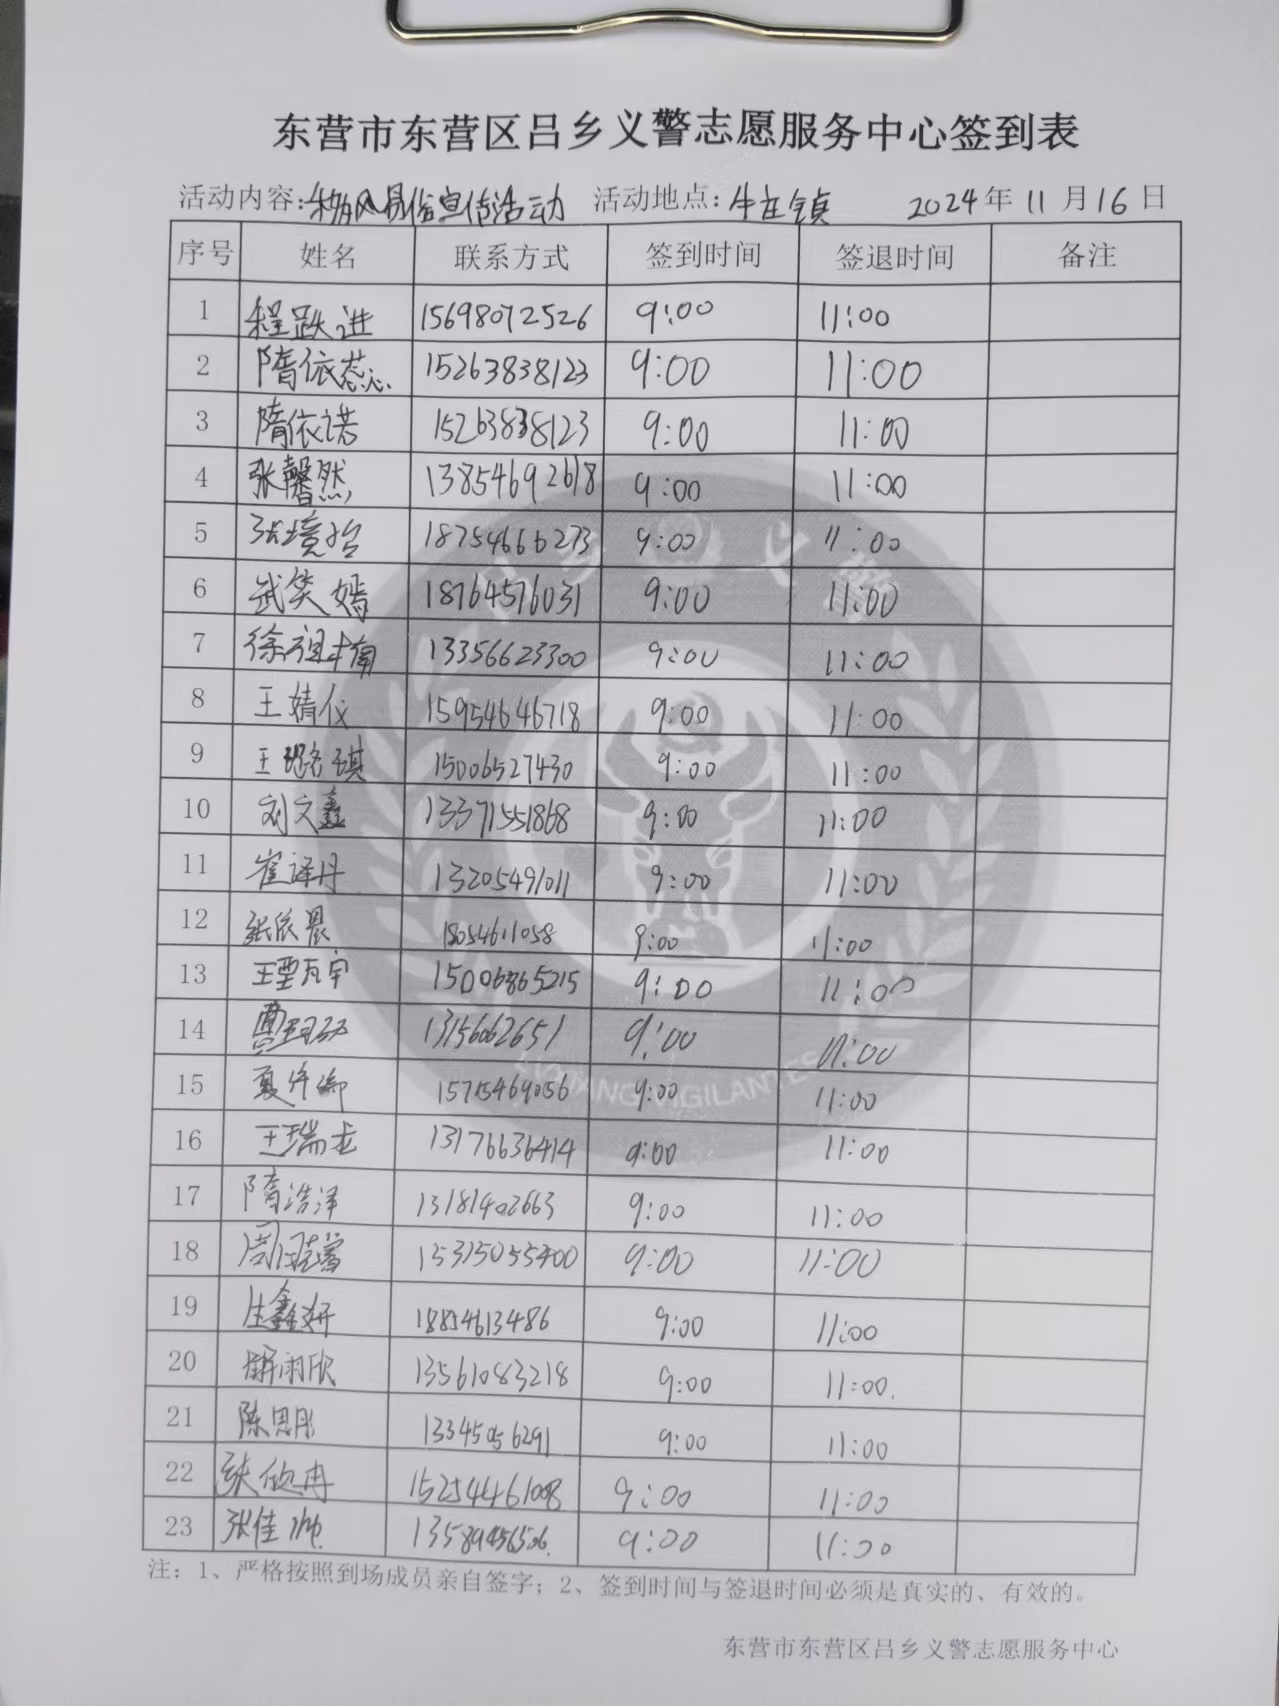 东营市东营区吕乡义警志愿服务中心签到表
活动内容:移风易俗宣传活动 活动地点:牛庄镇 2024年11月16日
序号 姓名 联系方式 签到时间 签退时间 备注
1 程跃进 15698072526 9:00 11:00
2 隋依蕊 15263838123 9:00 11:00
3 隋依诺 15263838123 9:00 11:00
4 张馨然 13854692618 9:00 11:00
5 张境怡 18754666273 9:00 11:00
6 武笑嫣 18764576031 9:00 11:00
7 徐祖楠 13356623300 9:00 11:00
8 王婧仪 15954646718 9:00 11:00
9 王璐琪 15006527430 9:00 11:00
10 刘文鑫 13371551868 9:00 11:00
11 崔译丹 13205491011 9:00 11:00
12 张依晨 18054611058 9:00 11:00
13 15006865215 9:00 11:00
14 9:00 11:00
15 15715469056 9:00 11:00
16 王瑞龙 13176636414 9:00 11:00
17 隋浩泽 13181402663 9:00 11:00
18 15315055400 9:00 11:00
19 生鑫妍 18854613486 9:00 11:00
20 解雨欣 13561083218 9:00 11:00
21 陈思彤 13345056291 9:00 11:00
22 张欣冉 15254461008 9:00 11:00
23 张佳帅 13589456506 9:00 11:00
注：1、严格按照到场成员亲自签字；2、签到时间与签退时间必须是真实的、有效的。
东营市东营区吕乡义警志愿服务中心
吕乡义警
LVXIANG VIGILANTES